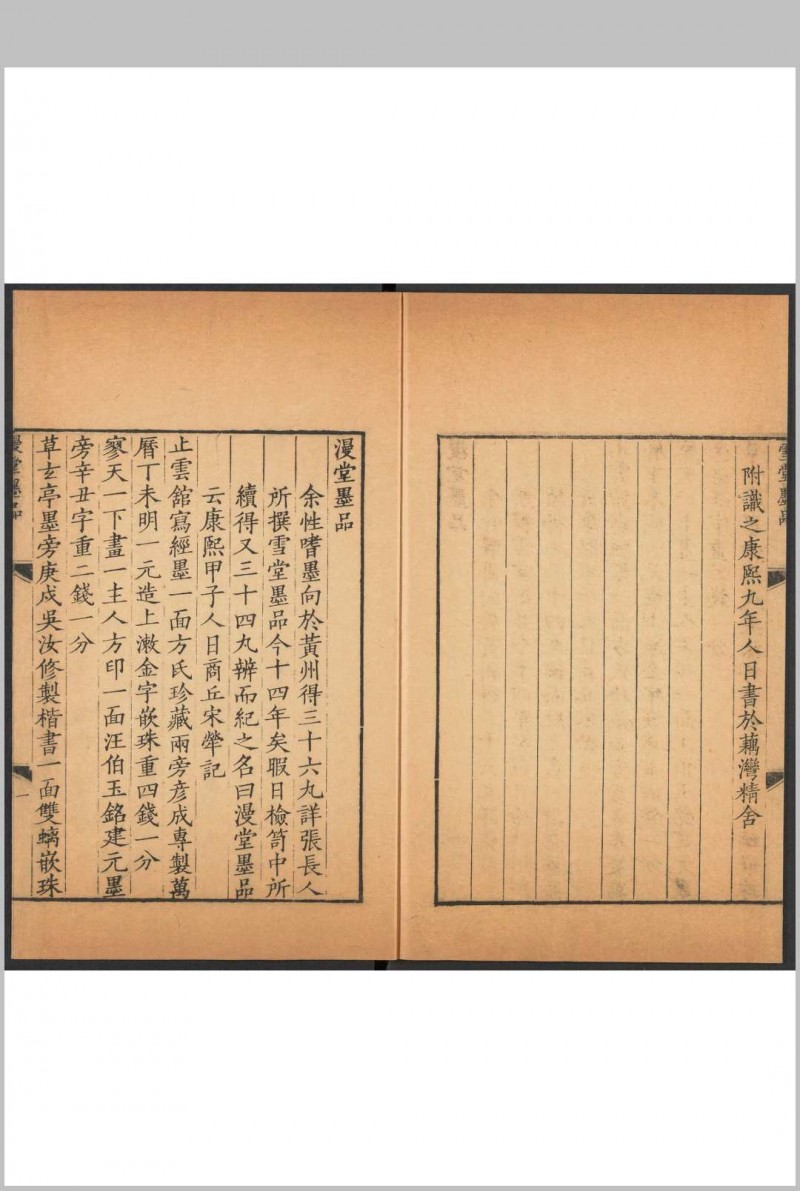 附識之康熙九年人日書於藕灣精舍
漫堂墨品
余性嗜墨向於黃州得三十六丸詳張長人
所撰雪堂墨品今十四年矣暇日檢笥中所
續得又三十四丸辨而紀之名曰漫堂墨品
云康熙甲子人日商丘宋犖記
止雲館寫經墨一面方氏珍藏兩旁彥成專製萬
曆丁未明一元造上漱金字嵌珠重四錢一分
寥天一下畫一主人方印一面汪伯玉銘建元墨
旁辛丑字重二錢一分
草玄亭墨旁庚戍吳汝修製楷書一面雙螭嵌珠
漫堂墨品
一